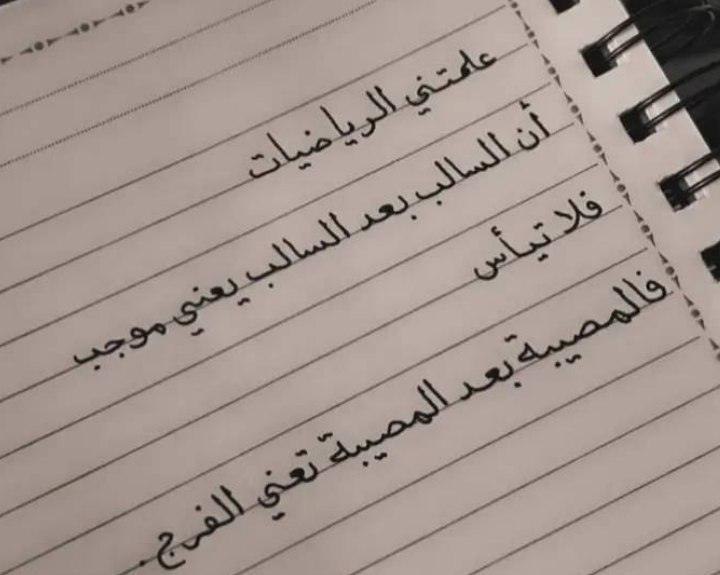 علمتني الرياضيات
أن السالب بعد السالب يعني موجب
فلا تيأس
فالمصيبة بعد المصيبة تعني الفرج.